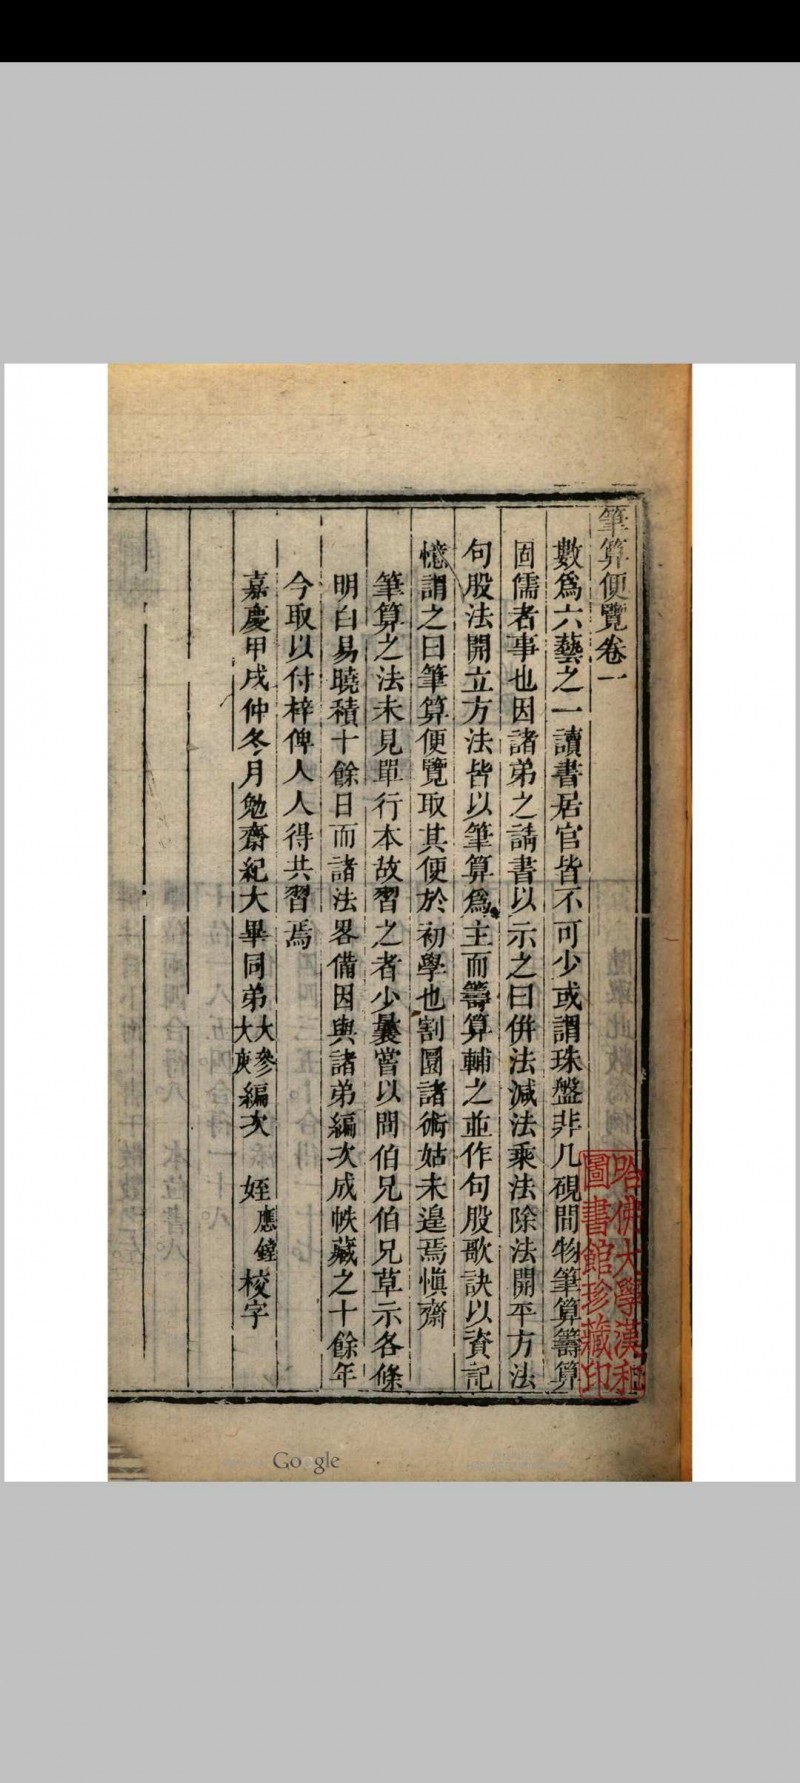 筆算便覽卷一
數爲六藝之一讀書居官皆不可少或謂珠盤非几硯間物筆算籌算
固儒者事也因諸弟之請書以示之曰併法減法乘法除法開平方法
句股法開立方法皆以筆算爲主而籌算輔之並作句股歌訣以資記
憶謂之曰筆算便覽取其便於初學也割圜諸術姑未遑焉愼齋
筆算之法未見單行本故習之者少曩嘗以問伯兄伯兄草示各條
明白易曉積十餘日而諸法畧備因與諸弟編次成帙藏之十餘年
今取以付梓俾人人得共習焉
嘉慶甲戌仲冬月勉齋紀大畢同弟大參大庚編次 姪應鐘校字
哈佛大學漢和
圖書館珍藏印
Google